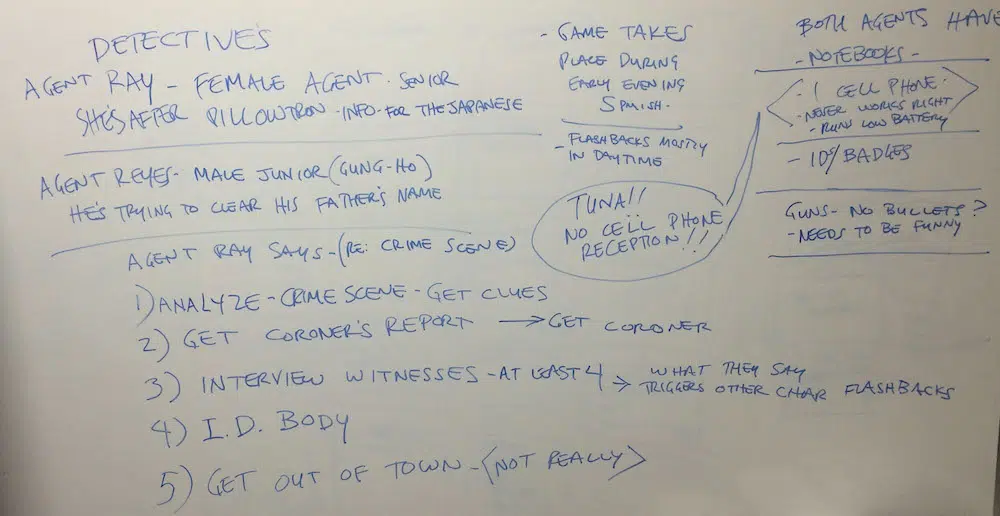 DETECTIVES
AGENT RAY - FEMALE AGENT. SENIOR
SHE'S AFTER PILLOWTRON - INFO - FOR THE JAPANESE
AGENT REYES - MALE JUNIOR (GUNG-HO)
HE'S TRYING TO CLEAR HIS FATHER'S NAME
AGENT RAY SAYS - (RE: CRIME SCENE)
1) ANALYZE - CRIME SCENE - GET CLUES
2) GET CORONER'S REPORT → GET CORONER
3) INTERVIEW WITNESSES - AT LEAST 4 → WHAT THEY SAY
TRIGGERS OTHER CHAR FLASHBACKS
4) I.D. BODY
5) GET OUT OF TOWN - <NOT REALLY>
- GAME TAKES
PLACE DURING
EARLY EVENING
5PMISH.
- FLASHBACKS MOSTLY
IN DAYTIME
TUNA!!
NO CELL PHONE
RECEPTION!!
BOTH AGENTS HAVE
- NOTEBOOKS -
- 1 CELL PHONE -
- NEVER WORKS RIGHT
- RUNS LOW BATTERY
- ID'S/BADGES
GUNS - NO BULLETS?
- NEEDS TO BE FUNNY